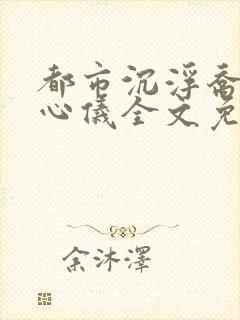 都市沉浮乔
心儀全文免
余沐澤